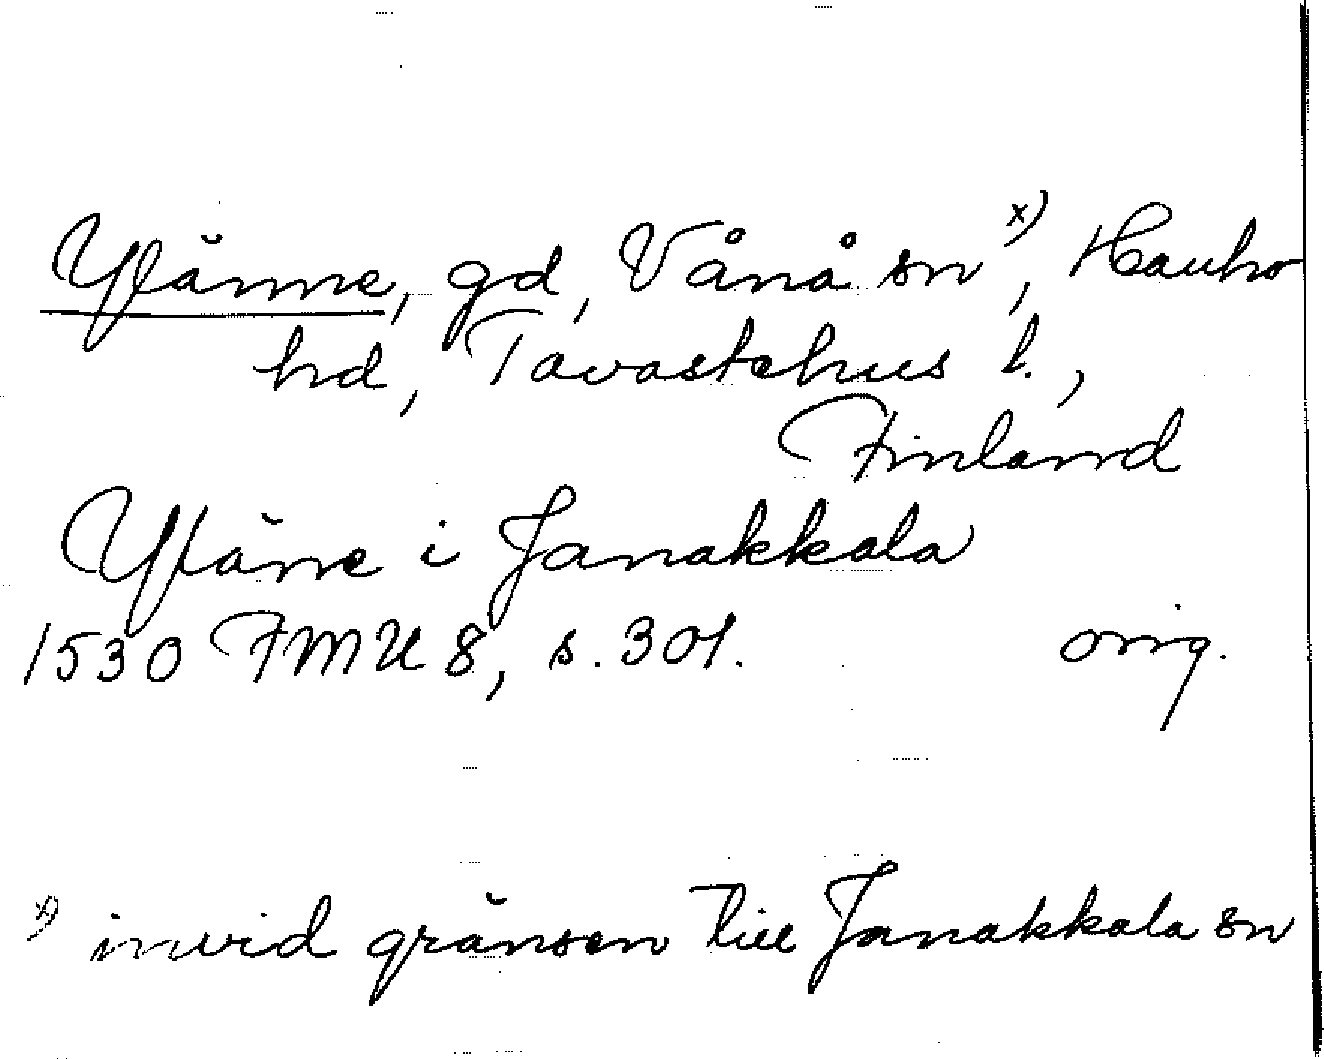 Ylänne, gd, Vånå sn x), Hauho
hd, Tavastehus l.,
Finland
Yläne i Janakkala
1530 FMU 8, s. 301. orig.
x) invid gränsen till Janakkala sn